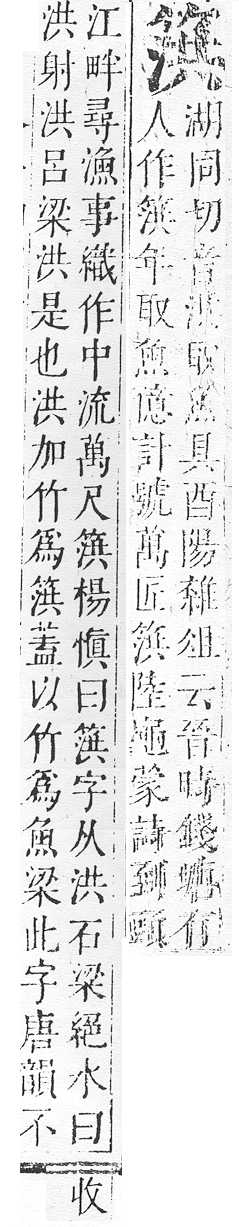 篊
湖同切音洪取魚具酉陽雜俎云晉時錢塘有
人作篊年取魚億計號萬匠篊陸龜蒙詩到頭
江畔尋漁事織作中流萬尺篊楊慎曰篊字从洪石梁絕水曰
洪射洪呂梁洪是也洪加竹爲篊蓋以竹爲魚梁此字唐韻不
收